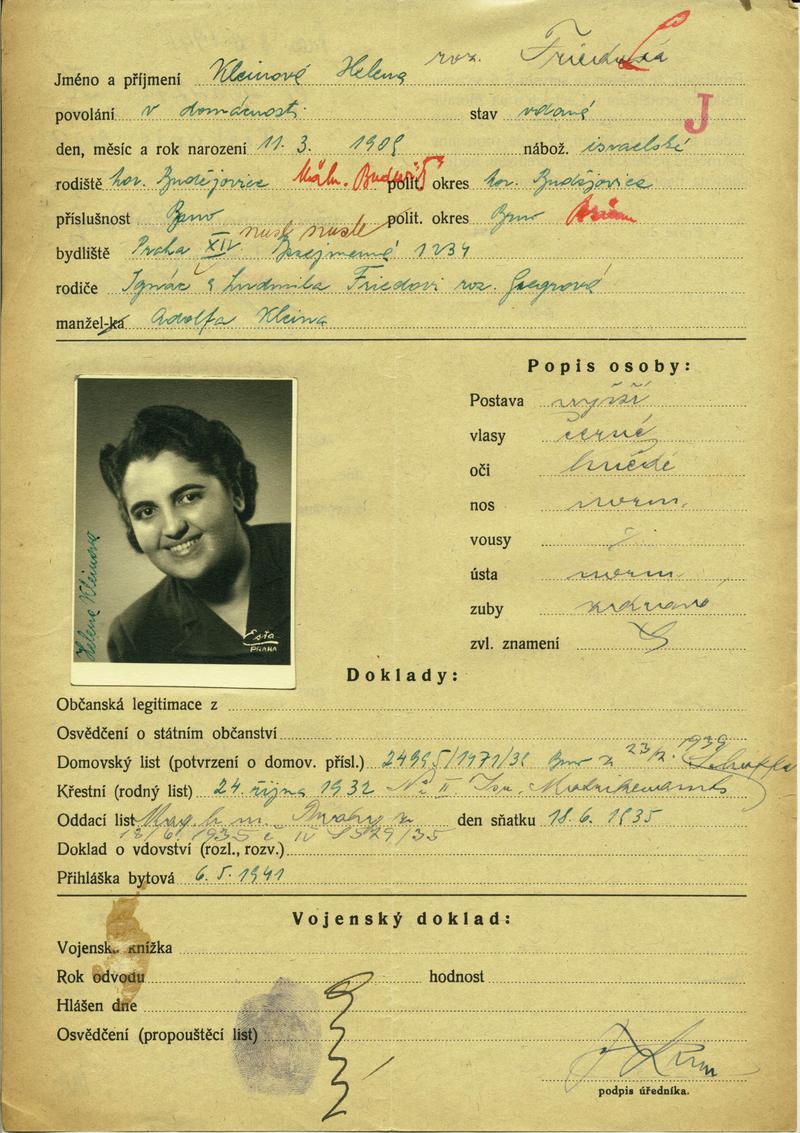 Jméno a příjmení Kleinová Helena roz. Friedová
povolání v domácnosti stav vdaná J
den, měsíc a rok narození 11. 3. 1909 nábož. israelské
rodiště Mor. Budějovice Mähr. Budwitz polit. okres Mor. Budějovice
příslušnost Brno polit. okres Brno Brünn
nusle nusle
bydliště Praha XIV 1234
rodiče Ignác a Ludmila Friedovi roz.
manžel-ka Adolfa Kleina
Popis osoby:
Postava vyšší
vlasy černé
oči hnědé
nos norm.
vousy
ústa norm.
zuby zdravé
zvl. znamení
Helena Kleinová
PRAHA
Doklady:
Občanská legitimace z
Osvědčení o státním občanství
Domovský list (potvrzení o domov. přísl.) Brno z 1939
Křestní (rodný list) 24. října 1932
Oddací list Mag. h. m. Prahy z den sňatku 18. 6. 1935
18/6 1935 č IV
Doklad o vdovství (rozl., rozv.)
Přihláška bytová 6. 5. 1941
Vojenský doklad:
Vojensk. knížka
Rok odvodu hodnost
Hlášen dne
Osvědčení (propouštěcí list)
podpis úředníka.